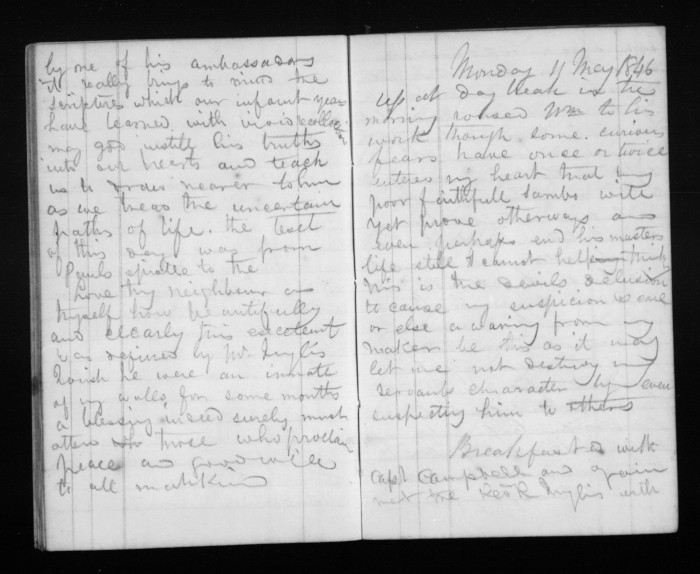 by one of his ambassadors
it really brings to mind the
scriptures which our infant years
have learned with
may god instill his truths
into our hearts and teach
us to draw nearer to him
as we tread the uncertain
paths of life. the text
of this day was from
Pauls to the
love thy neighbour as
thyself how beautifully
and clearly this excelent
was defined by Mr Inglis
I wish he were an inmate
of my walls for some months
a blessing indeed surely must
atten those who proclaim
peace and good will
to all mankind
Monday 11 May 1846
Up at day break in the
morning roused Wm to his
work though some curious
fears have once or twice
entered my heart that my
poor faithfull Sambo will
yet prove otherways and
even perhaps end his masters
life still I cannot help think
this is the devils delusion
to cause my suspicion
or else a warning from my
maker be this as it may
let me not destroy my
servants character by even
suspecting him to others
Breakfasted with
Capt Campbell and again
met the Revd R Inglis with